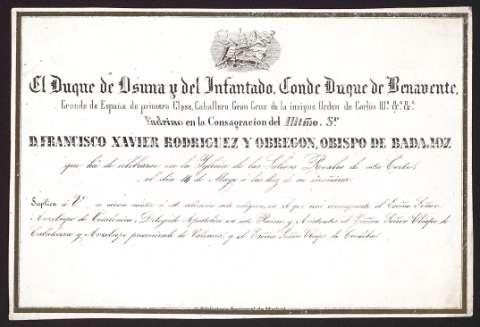 El Duque de Osuna y del Infantado, Conde Duque de Benavente,
Grande de España de primera Clase, Caballero Gran Cruz de la insigne Orden de Carlos III. &ª. &ª.
Padrino en la Consagracion del Illmo. Sr.
D. FRANCISCO XAVIER RODRIGUEZ Y OBREGON, OBISPO DE BADAJOZ
que há de celebrarse en la Iglesia de las Salesas Reales de esta Corte,
el dia 14 de Mayo á las diez de su mañana.
Suplica á V. se sirva asistir á este solemne acto religioso, en el que será consagrante el Excmo. Señor
Arzobispo de Delegado Apostólico en estos Reinos, y Asistentes el Señor Obispo de
Calahorra y Arzobispo preconizado de Valencia, y el Excmo. Señor Obispo de Córdoba.
Biblioteca Nacional de Madrid